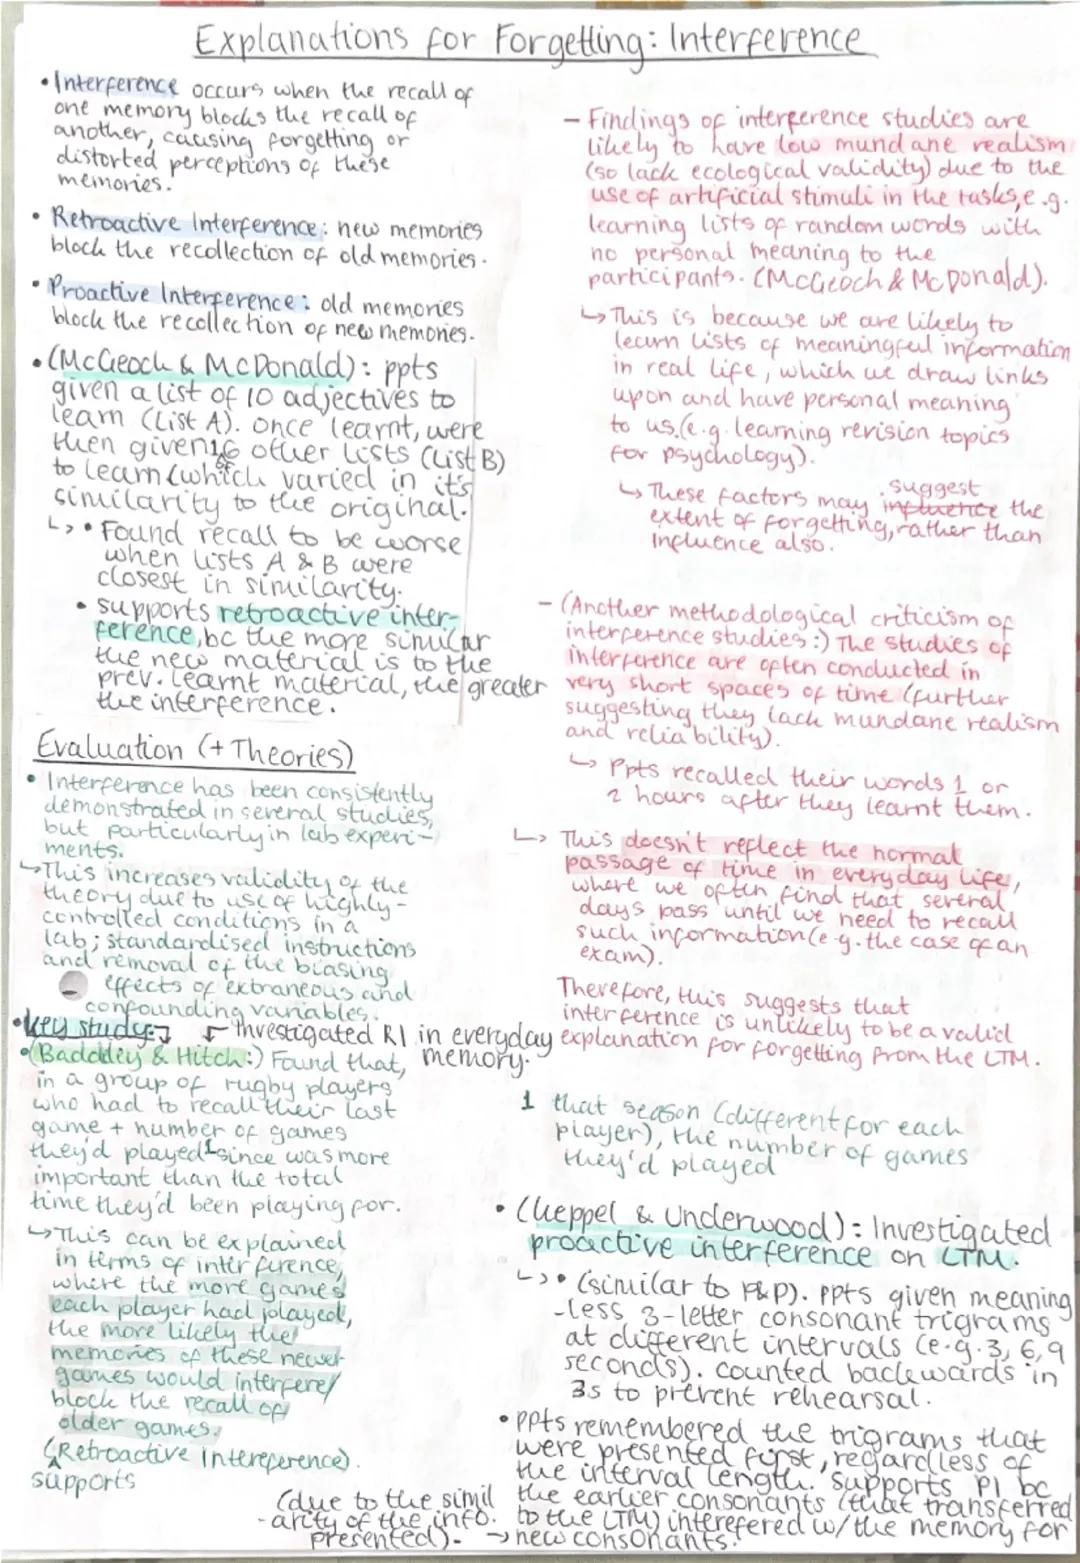 Explanations for Forgetting: Interference
• Interference occurs when the recall of
one memory blocks the recall of
another, causing forgetting or
distorted perceptions of these
memories.
• Retroactive Interference: new memories
block the recollection of old memories.
• Proactive Interference: old memories
block the recollection of new memories.
• (McGeoch & McDonald): ppts
given a list of 10 adjectives to
learn (List A). Once learnt, were
then given 1 of 6 other lists (List B)
to learn (which varied in it's
similarity to the original.
↳ • Found recall to be worse
when lists A & B were
closest in similarity.
• supports retroactive inter-
ference, bc the more similar
the new material is to the
prev. learnt material, the greater
the interference.
Evaluation (+ Theories)
• Interference has been consistently
demonstrated in several studies,
but particularly in lab experi-
ments.
↳ This increases validity of the
theory due to use of highly-
controlled conditions in a
lab; standardised instructions
and removal of the biasing
effects of extraneous and
confounding variables.
• key study: Investigated RI in everyday
memory.
• (Baddeley & Hitch:) Found that,
in a group of rugby players
who had to recall their last
game + number of games
they'd played 1 since was more
important than the total
time they'd been playing for.
↳ This can be explained
in terms of interference,
where the more games
each player had played,
the more likely the
memories of these newer
games would interfere/
block the recall of
older games.
(Retroactive Intereference).
supports
- Findings of interference studies are
likely to have low mundane realism
(so lack ecological validity) due to the
use of artificial stimuli in the tasks, e.g.
learning lists of random words with
no personal meaning to the
participants. (McGeoch & McDonald).
↳ This is because we are likely to
learn lists of meaningful information
in real life, which we draw links
upon and have personal meaning
to us. (e.g. learning revision topics
for psychology).
↳ These factors may influence suggest the
extent of forgetting, rather than
influence also.
- (Another methodological criticism of
interference studies:) The studies of
interference are often conducted in
very short spaces of time (further
suggesting they lack mundane realism
and reliability).
↳ Ppts recalled their words 1 or
2 hours after they learnt them.
↳ This doesn't reflect the normal
passage of time in everyday life,
where we often find that several
days pass until we need to recall
such information (e.g. the case of an
exam).
Therefore, this suggests that
interference is unlikely to be a valid
explanation for forgetting from the LTM.
1 that season (different for each
player), the number of games
they'd played
• (Keppel & Underwood): Investigated
proactive interference on LTM.
↳ • (similar to P&P). ppts given meaning
-less 3-letter consonant trigrams
at different intervals (e.g. 3, 6, 9
seconds). counted backwards in
3s to prevent rehearsal.
• ppts remembered the trigrams that
were presented first, regardless of
the interval length. supports PI bc
the earlier consonants (that transferred
to the LTM) interefered w/ the memory for
→ new consonants.
(due to the simil
-arity of the info.
presented).